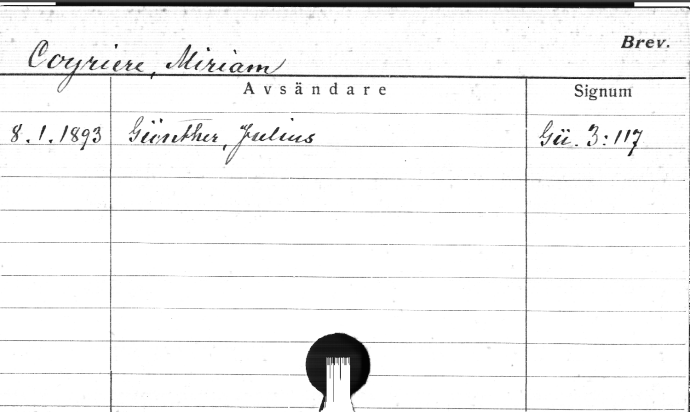 Brev.
Coyriere, Miriam
Avsändare Signum
8.1.1893 Günther, Julius Gü. 3:117